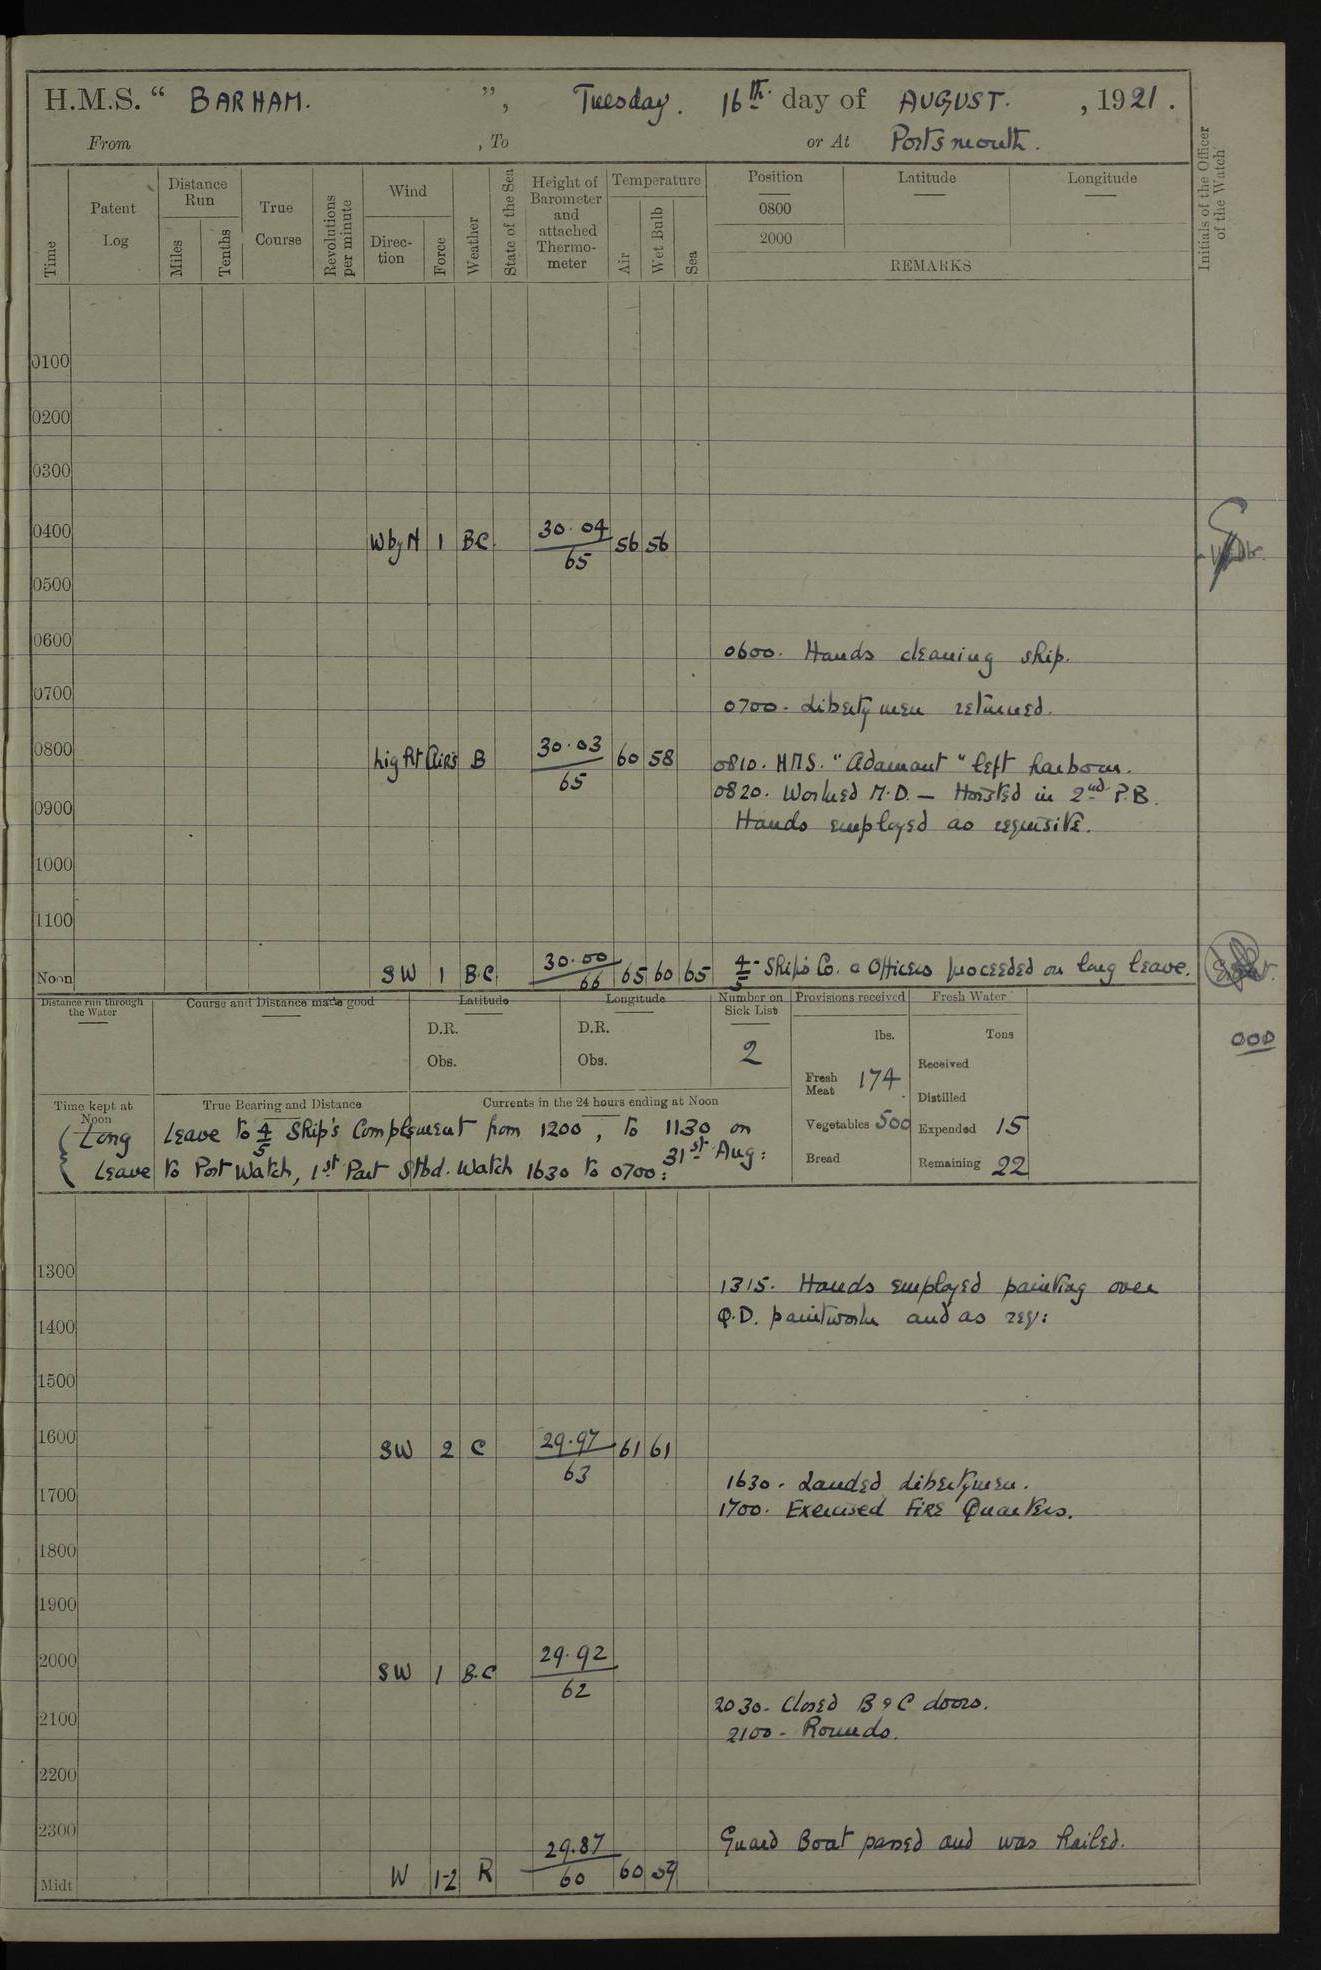 H.M.S. “ BARHAM. ”, Tuesday. 16th day of AUGUST. , 1921.
From , To or At Portsmouth.
Time Patent Log Distance Run Miles Tenths True Course Revolutions per minute Wind Direc-tion Force Weather State of the Sea Height of Barometer and attached Thermo-meter Temperature Air Wet Bulb Sea Position 0800 2000 Latitude Longitude Initials of the Officer of the Watch
REMARKS
0100
0200
0300
0400 W by N 1 BC. 30.04/65 56 56
0500
0600 0600. Hands cleaning ship.
0700 0700. Liberty men returned.
0800 Light Airs B 30.03/65 60 58 0810. HMS. "Adamant" left harbour.
0820. Worked M.D. — Hoisted in 2nd P.B.
0900 Hands employed as requisite.
1000
1100
Noon SW 1 B.C. 30.00/66 65 60 65 4/5 Ship's Co. & Officers proceeded on long leave.
Distance run through the Water Course and Distance made good Latitude Longitude Number on Sick List Provisions received Fresh Water
D.R. D.R. 2 lbs. Tons
Obs. Obs. Fresh Meat 174 Received
Distilled
Time kept at Noon True Bearing and Distance Currents in the 24 hours ending at Noon Vegetables 500 Expended 15
Bread Remaining 22
Long Leave to 4/5 Ship's Complement from 1200, to 1130 on 31st Aug:
Leave to Port Watch, 1st Part Stbd. Watch 1630 to 0700:
OOD
1300 1315. Hands employed painting over
1400 Q.D. paintwork and as req:
1500
1600 SW 2 C 29.97/63 61 61
1630. Landed libertymen.
1700 1700. Exercised Fire Quarters.
1800
1900
2000 SW 1 B.C 29.92/62
2030. Closed B & C doors.
2100 2100 - Rounds.
2200
2300 Guard Boat passed and was hailed.
Midt W 1-2 R 29.87/60 60 59